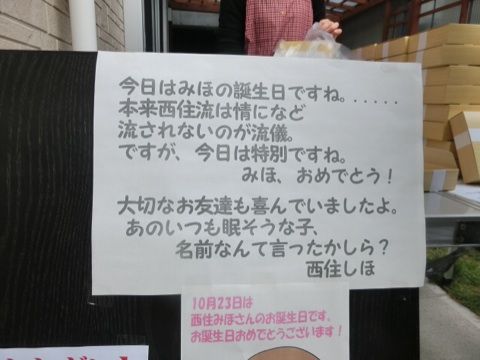 今日はみほの誕生日ですね。.....
本来西住流は情になど
流されないのが流儀。
ですが、今日は特別ですね。
みほ、おめでとう！
大切なお友達も喜んでいましたよ。
あのいつも眠そうな子、
名前なんて言ったかしら？
西住しほ
10月23日は
西住みほさんのお誕生日です、
お誕生日おめでとうございます！